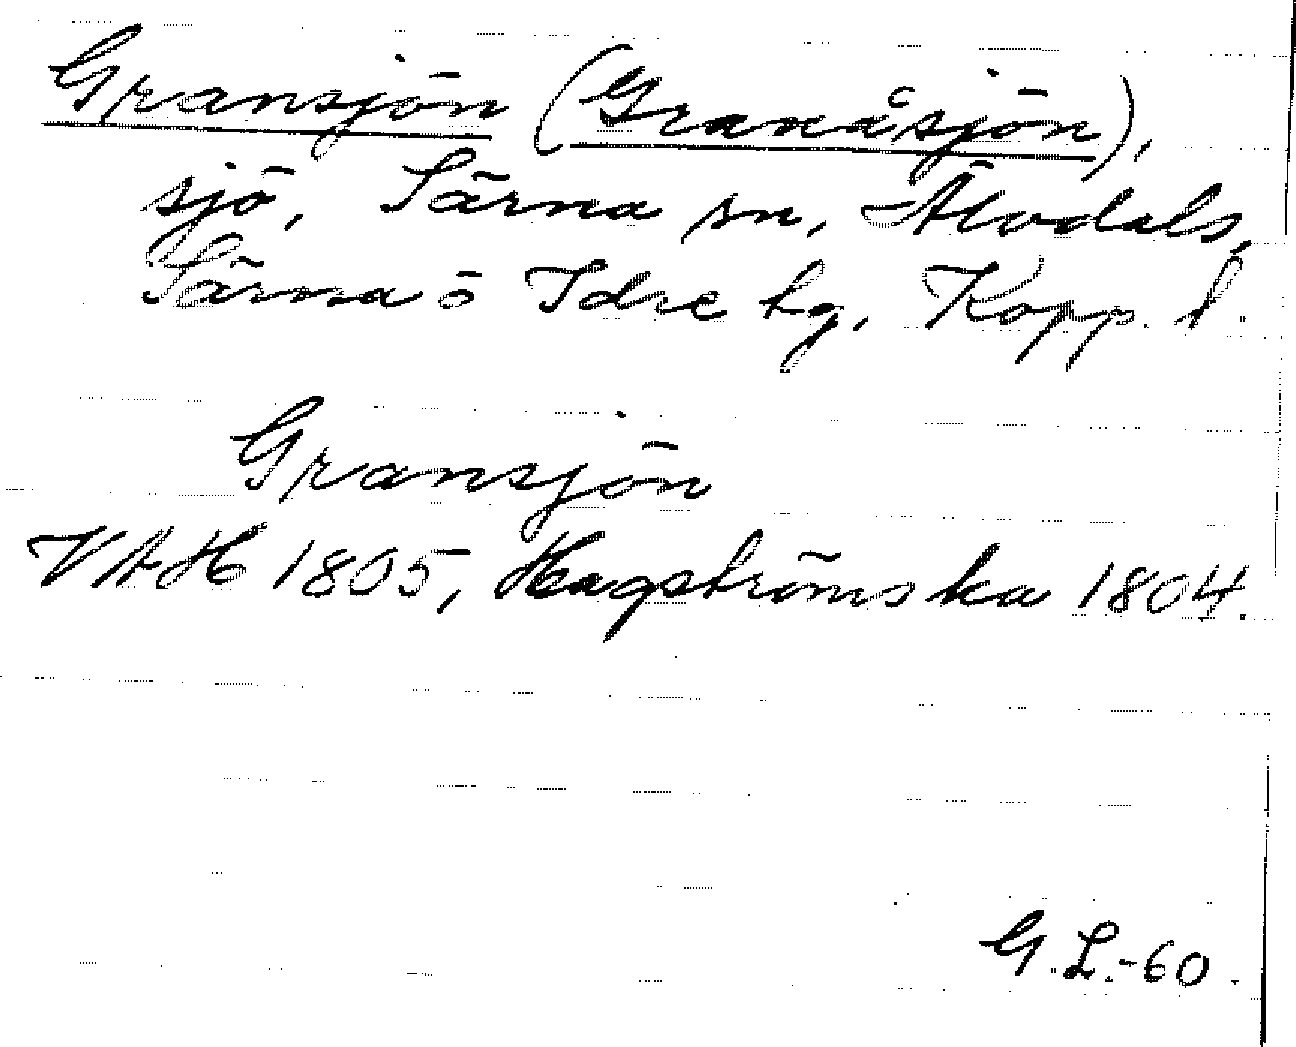 Gransjön (Granåsjön),
sjö, Särna sn, Älvdals,
Särna ö Idre hg, Kopp. l.
Gransjön
VAH 1805, Hagströmska 1804.
G.L.-60.